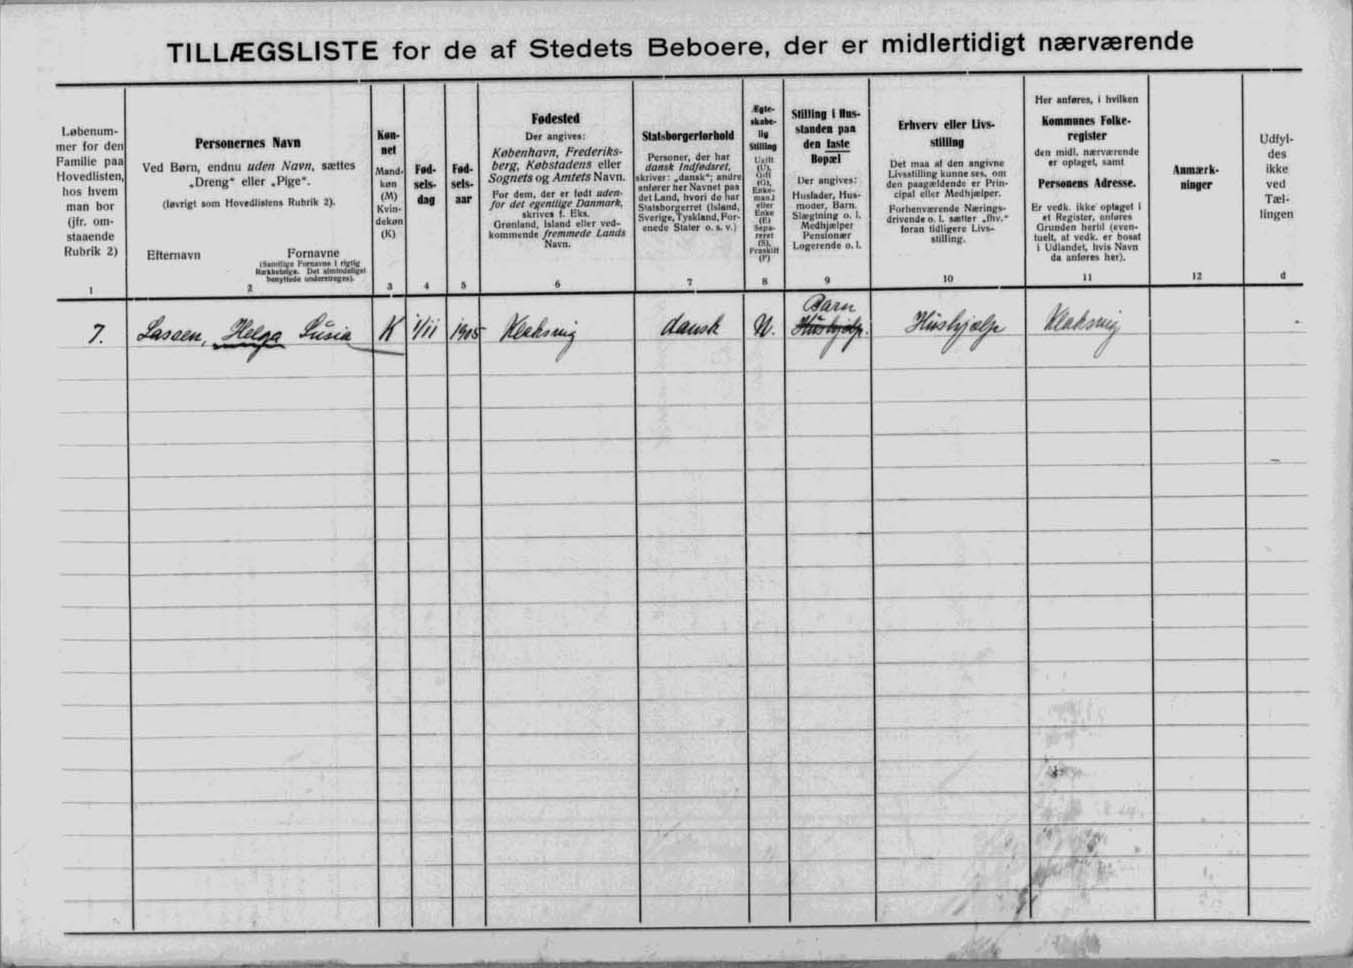 TILLÆGSLISTE for de af Stedets Beboere, der er midlertidigt nærværende
Løbenum-
mer for den
Familie paa
Hovedlisten,
hos hvem
man bor
(jfr. om-
staaende
Rubrik 2)
1
Personernes Navn
Ved Børn, endnu uden Navn, sættes
„Dreng“ eller „Pige“.
(Iøvrigt som Hovedlistens Rubrik 2).
Efternavn
Fornavne
(Samtlige Fornavne i rigtig
Rækkefølge. Det almindeligst
benyttede understreges).
2
Køn-
net
Mand-
køn
(M)
Kvin-
dekøn
(K)
3
Fød-
sels-
dag
4
Fød-
sels-
aar
5
Fødested
Der angives:
København, Frederiks-
berg, Købstadens eller
Sognets og Amtets Navn.
For dem, der er født uden-
for det egentlige Danmark,
skrives f. Eks.
Grønland, Island eller ved-
kommende fremmede Lands
Navn.
6
Statsborgerforhold
Personer, der har
dansk Indfødsret,
skriver: „dansk“; andre
anfører her Navnet paa
det Land, hvori de har
Statsborgerret (Island,
Sverige, Tyskland, For-
enede Stater o. s. v.)
7
Ægte-
skabe-
lig
Stilling
Ugift
(U),
Gift
(G),
Enke-
mand
eller
Enke
(E)
Sepa-
reret
(S),
Fraskilt
(F)
8
Stilling i Hus-
standen paa
den faste
Bopæl
Der angives:
Husfader, Hus-
moder, Barn,
Slægtning o. l.
Medhjælper
Pensionær
Logerende o. l.
9
Erhverv eller Livs-
stilling
Det maa af den angivne
Livsstilling kunne ses, om
den paagældende er Prin-
cipal eller Medhjælper.
Forhenværende Nærings-
drivende o. l. sætter „fhv.“
foran tidligere Livs-
stilling.
10
Her anføres, i hvilken
Kommunes Folke-
register
den midl. nærværende
er optaget, samt
Personens Adresse.
Er vedk. ikke optaget i
et Register, anføres
Grunden hertil (even-
tuelt, at vedk. er bosat
i Udlandet, hvis Navn
da anføres her).
11
Anmærk-
ninger
12
Udfyl-
des
ikke
ved
Tæl-
lingen
d
Barn
7. Lassen, Helga Súsia K 1/11 1915 Klaksvig dansk U. Húshjælp. Húshjælp Klaksvig